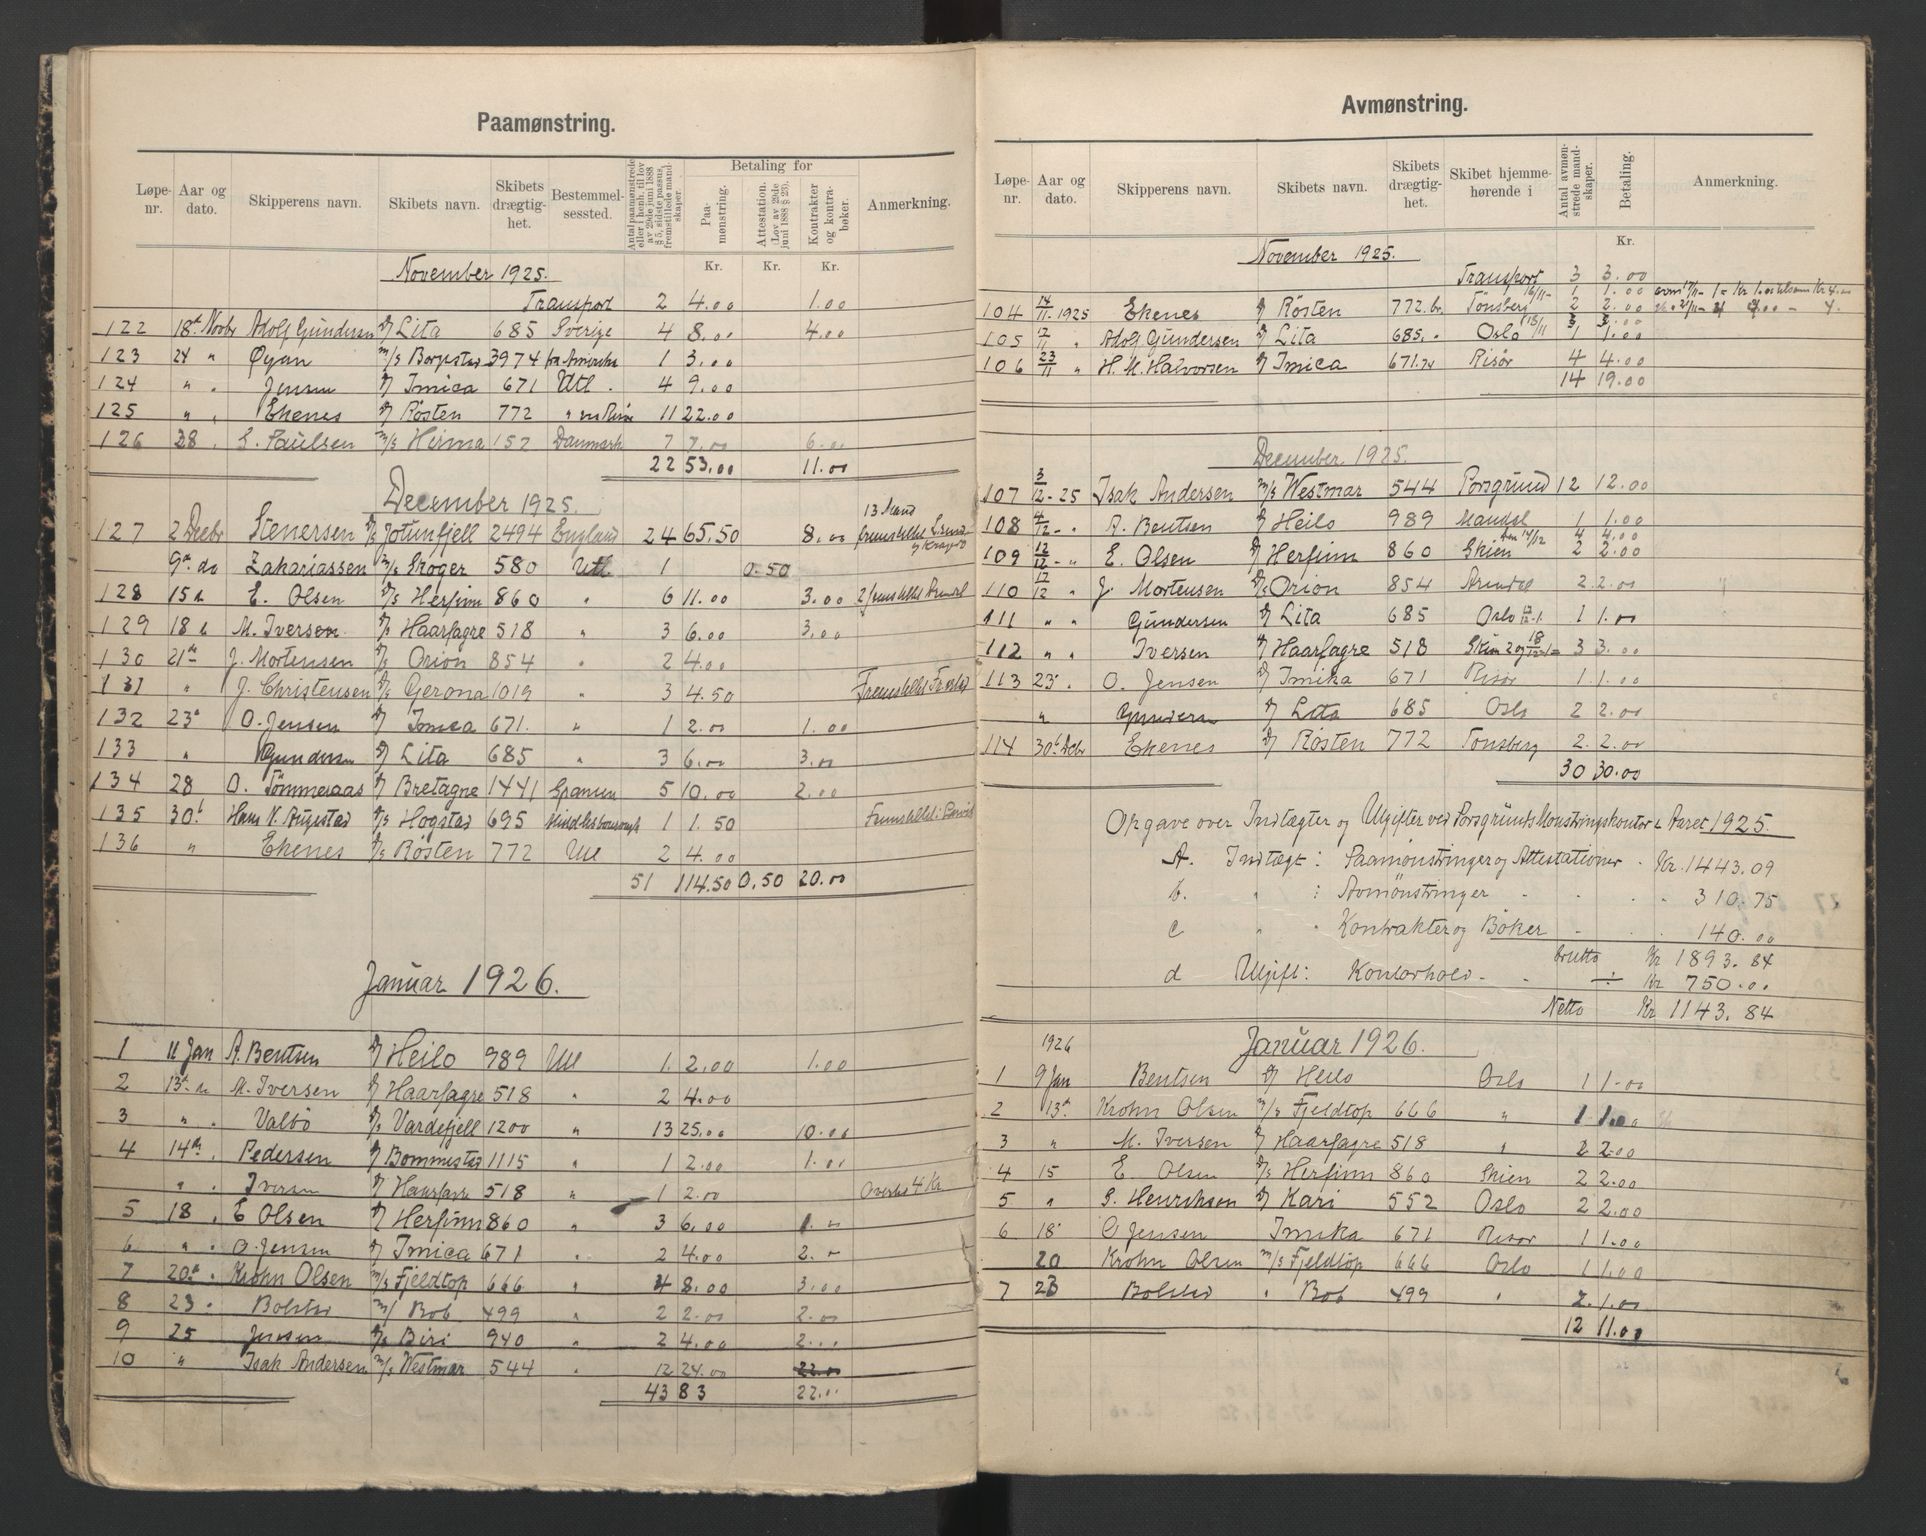 Paamønstring.
Løpe-nr. Aar og dato. Skipperens navn. Skibets navn. Skibets drægtighet. Bestemmelsessted. Antal paamønstrede eller i henh. til lov av 29de juni 1888 § 5, sidste passus, fremstillede mandskaper. Betaling for Paamønstring. Attestation. (Lov av 29de juni 1888 § 23). Kontrakter og kontrabøker. Anmerkning.
Kr. Kr. Kr.
November 1925.
Transport 2 4.00 1.00
122 18de Novbr Adolf Gundersen D/ Lita 685 Sverige 4 8.00 4.00
123 24 " Øyan M/S Borgestad 3974 fra Amerika 1 3.00
124 " . Jensen D/ Imica 671 Utl. 4 9.00
125 " . Ekenes D/ Røsten 772 " 11 22.00
126 28 . E. Paulsen M/S Heima 152 Danmark 7 7.00 6.00
22 53.00 11.00
December 1925.
127 2 Decbr Stenersen D/S Jotunfjell 2494 England 24 65.50 8.00 13 Mand fremstillet
9de do Zakariassen M/S Skoger 580 Utl. 1 0.50
128 15 d. E. Olsen D/S Herfinn 860 " 6 11.00 3.00 2 fremstillet Arendal
129 18 d. M. Iversen D/S Haarfagre 518 " 3 6.00 3.00
130 21de J. Mortensen D/S Orion 854 " 2 4.00
131 " J. Christensen D/S Gerona 1019 " 3 4.50 Fremstillet
132 23d O. Jensen D/ Imica 671. " 1 2.00 1.00
133 " Gundersen D/ Lita 685 " 3 6.00 3.00
134 28 O. Tømmeraas D/ Bretagne 1441 Spanien 5 10.00 2.00
135 30d. Hans V. Augestad D/S Høgstad 695 Middlesborough 1 1.50 Fremstillet i
136 " Ekenes D/S Røsten 772 Utl 2 4.00
51 114.50 0.50 20.00
Januar 1926.
1 11 Jan A. Bentsen D/ Heilo 989 Utl 1. 2.00 1.00
2 13de M. Iversen D/ Haarfagre 518 " 2 4.00
3 " . Valbö D/S Vardefjell 1200 " 13 25.00 10.00
4 14de . Pedersen D/ Bommestad 1115 " 1 2.00 1.00
" . Iversen D/ Haarfagre 518 " 1 2.00 4 Kr
5 18 . E Olsen D/ Herfinn 860 " 3 6.00 1.
6 " . O. Jensen D/ Imica 671 " 2 4.00 2.
7 20de . Krohn Olsen M/S Fjeldtop 666 " 4 8.00 3.00
8 23 . Bolstad M/ Bob 499 " 2 2.00 2.00
9 25 Jensen D/S Biri 940 " 2 4.00 2.
10 " Isak Andersen M/S Westmar 544 . 12 24.00 22.00
43 83 22.00
Avmønstring.
Løpe-nr. Aar og dato. Skipperens navn. Skibets navn. Skibets drægtighet. Skibet hjemmehørende i Antal avmønstrede mandskaper. Betaling. Anmerkning.
Kr.
November 1925.
Transport 3 3.00
16/11 - 1 1.00
104 14/11 1925 Ekenes D/ Røsten 772. br. Tönsberg 2 2.00
18/11 3 3.00
105 17/11 " Adolf Gundersen D/ Lita 685. Oslo 1 1.00
106 23/11 " H. M. Halvorsen D/ Imica 671.74 Risör 4 4.00
14 19.00
December 1925.
107 3/12 - 25 Isak Andersen M/S Westmar 544 Porsgrund 12 12.00
108 4/12 - " A. Bentsen D/ Heilo 989 Mandal 1 1.00
14/12 4 4.00
109 12/12 - " E. Olsen D/ Herfinn 860 Skien 2 2.00
110 17/12 " J. Mortensen D/S Orion 854 Arendal 2 2.00
111 " " Gundersen D/ Lita 685 Oslo 1 1.00
112 " " Iversen D/ Haarfagre 518 Skien 2 og 18/12 1 = 3 3.00
113 23 . O. Jensen D/ Imika 671 Risör 1 1.00
" Gundersen D/ Lita 685 Oslo 2 2.00
114 30d Decbr Ekenes D/ Røsten 772 Tönsberg 2. 2.00
30 30.00
Opgave over Indtægter og Utgifter ved Porsgrunds Mönstringskontor i Aaret 1925.
A. Indtægt: Paamönstringer og Attestationer . Kr. 1443.09
b. " : Avmönstringer . . . " 310.75
c " " Kontrakter og Böker . . . 140.00
Brutto Kr 1893.84
d Utgift: Kontorhold - - ÷ Kr 750.00
Netto Kr 1143.84
1926 Januar 1926.
1 9 Jan Bentsen D/ Heilo Oslo 1 1.00
2 13de Krohn Olsen M/S Fjeldtop 666 " 1 1.00
3 " M. Iversen D/ Haarfagre 518 " 2 2.00
4 15 E. Olsen D/S Herfinn 860 Skien 2 2.00
5 " S. Henriksen D/ Kari 552 Oslo 2 2.00
6 18 O Jensen Imika 671 Risör 1 1.00
20 Krohn Olsen M/S Fjeldtop 666 Oslo 1 1.00
7 23 Bolstad " Bob 499 " 2. 1.00
12 11.00